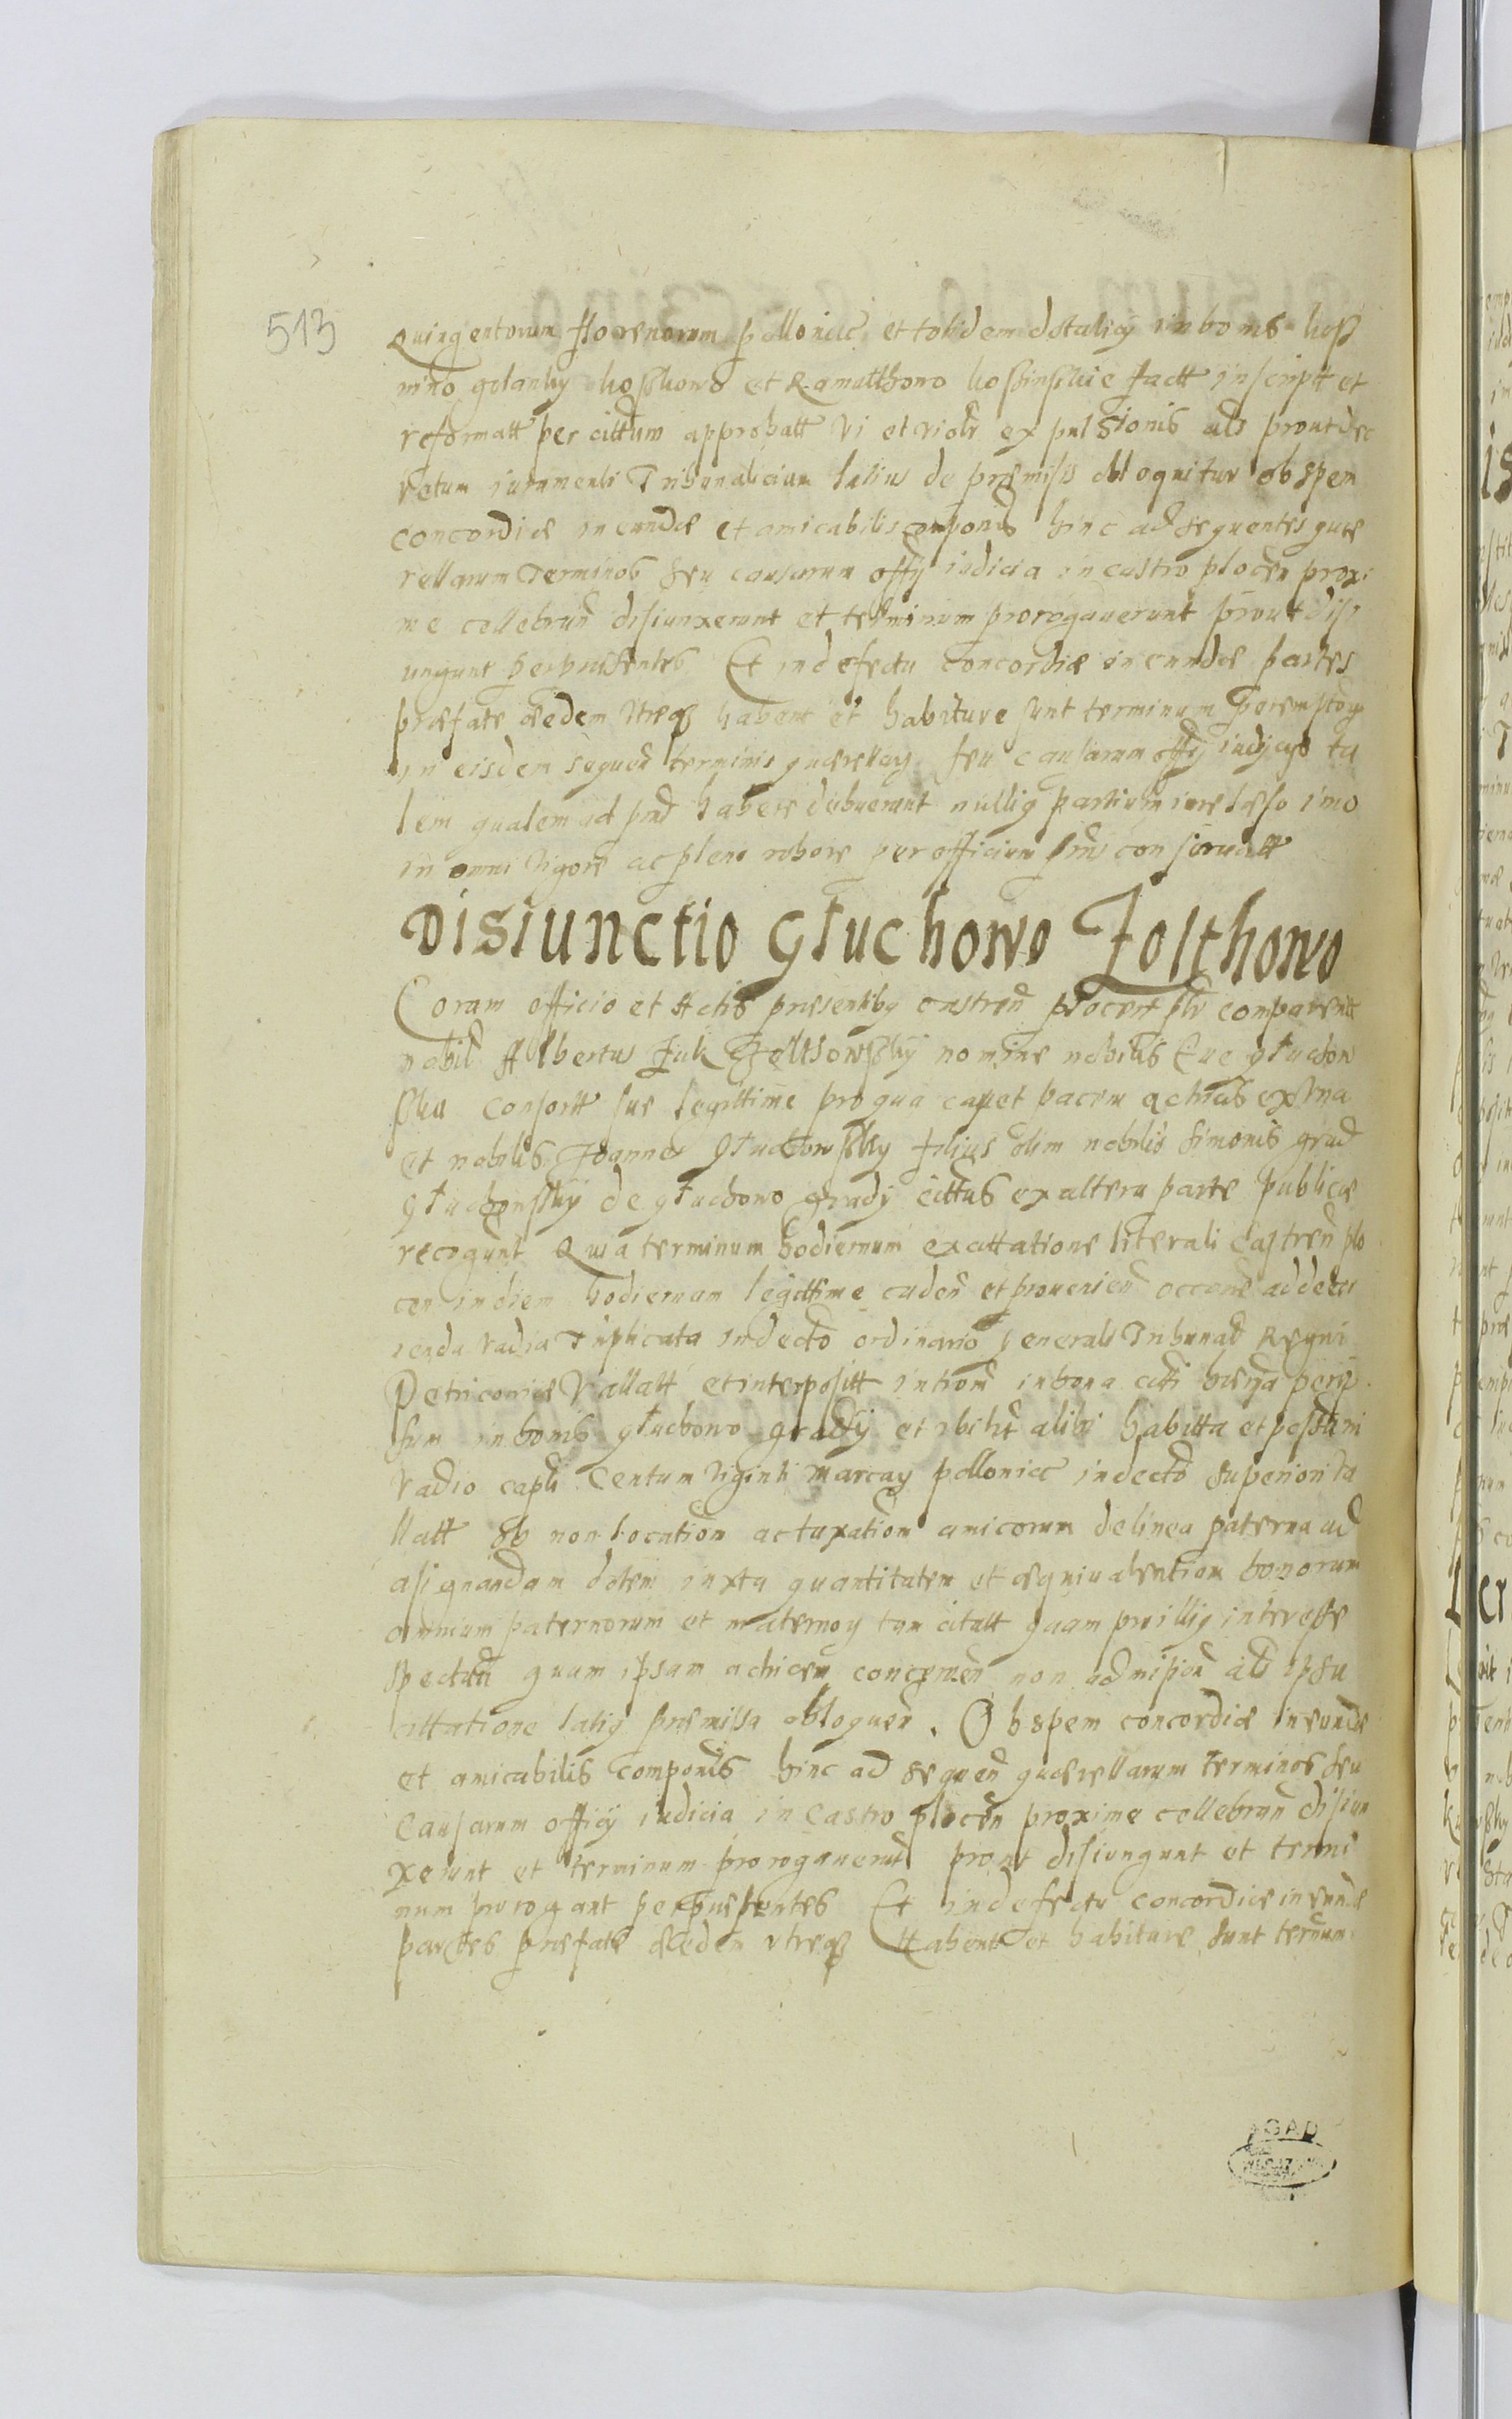 513
Quingentorum florenorum pollonic et totidem dotalicy in bonis kosz
mino golanky koskowo et Ramuthowo kossinskie factt inscriptt et
reformatt per cittatum approbatt vi et violr expulsionis als prout dec
retum iuramenti Tribunalicium latius de premisis obloquitur ob spem
concordiæ ineundæ et amicabilis componis hinc ad sequentes que
rellarum Terminos seu causarum officy iudicia in castro plocen proxi
me cellebran disiunxerunt et terminum prorogaverunt prout disi
ungunt per presentes Et in defectu concordiæ ineundæ partes
præfate eedem utreq habent et habiture sunt terminum peremptory
in eisdem sequen terminis querellary seu causarum officy iudicys ta
lem qualem ad pnd habere debuerunt nullig partium iure læso imo
in omni vigore ac pleno robore per officium pns conservatt
Disiunctio Głuchowo Zolthowo
Coram officio et Actis presentiby castren plocen plr comparentt
nobil Albertus Fuk Zolthowsky nomine nobilis Eve głuchow
ska consortt sue legittime pro qua cavet pacem actricis ex una
et nobilis Joannes Głuchowsky filius olim nobilis Simonis grud
głuchowsky de głuchowo grudy citttus ex altera parte publice
recogunt Quia terminum hodiernum ex cittatione literali castren plo
cen in diem hodiernum legittime caden et provenien occone ad decer
nenda vadia Triplicata in decto ordinario generali Tribunal Regni
Petricoviæ vallatt et interpositt introm in bona citti
sum in bonis głuchowo grudy et ibi et alibi habitta et possum
vadio capli Centum viginti marcay pollonic in decto superiori va
llatt ob non locution ac taxation amicorum de linea paterna ad
asignandam dotem iuxta quantitatem et æquivalention bonorum
omnium paternorum et maternoy tam citatt quam pro illig interesse
spectan quam ipsam actricem concernen non admision als ipsa
cittatione latig premissa obloquen. Ob spem concordiæ ineundæ
et amicabilis componis hinc ad sequen querellarum terminos seu
Causarum officy iudicia in Castro plocen proxime cellebran disiun
xerunt et terminum prorogaverunt prout disiungunt et termi
num prorogant per presentes Et in defectu concordiæ ineundæ
partes præfate eedem utreq Habentt et habiture sunt termium
AGAD